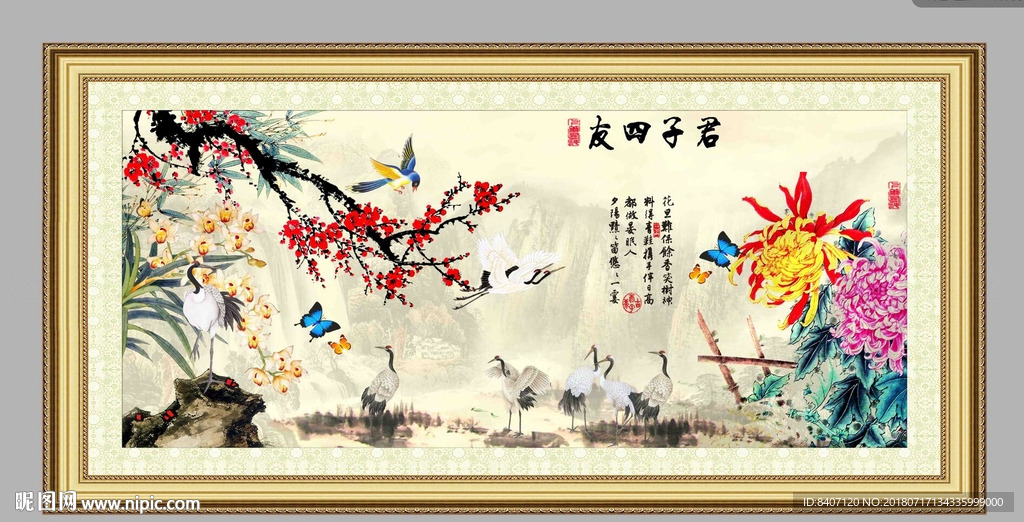 君子四友
花里難保餘香笑樹神
料得青鞋携手伴日高
都做晏眠人
夕陽點點笛悠悠一霎
昵图网 www.nipic.com
ID:8407120 NO:20180717134335999000